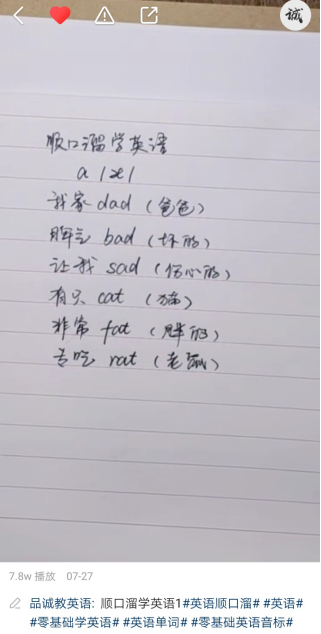 诚
顺口溜学英语
a /æ/
我家 dad (爸爸)
脾气 bad (坏的)
让我 sad (伤心的)
有只 cat (猫)
非常 fat (胖的)
专吃 rat (老鼠)
7.8w 播放 07-27
品诚教英语: 顺口溜学英语1#英语顺口溜# #英语#
#零基础学英语# #英语单词# #零基础英语音标#